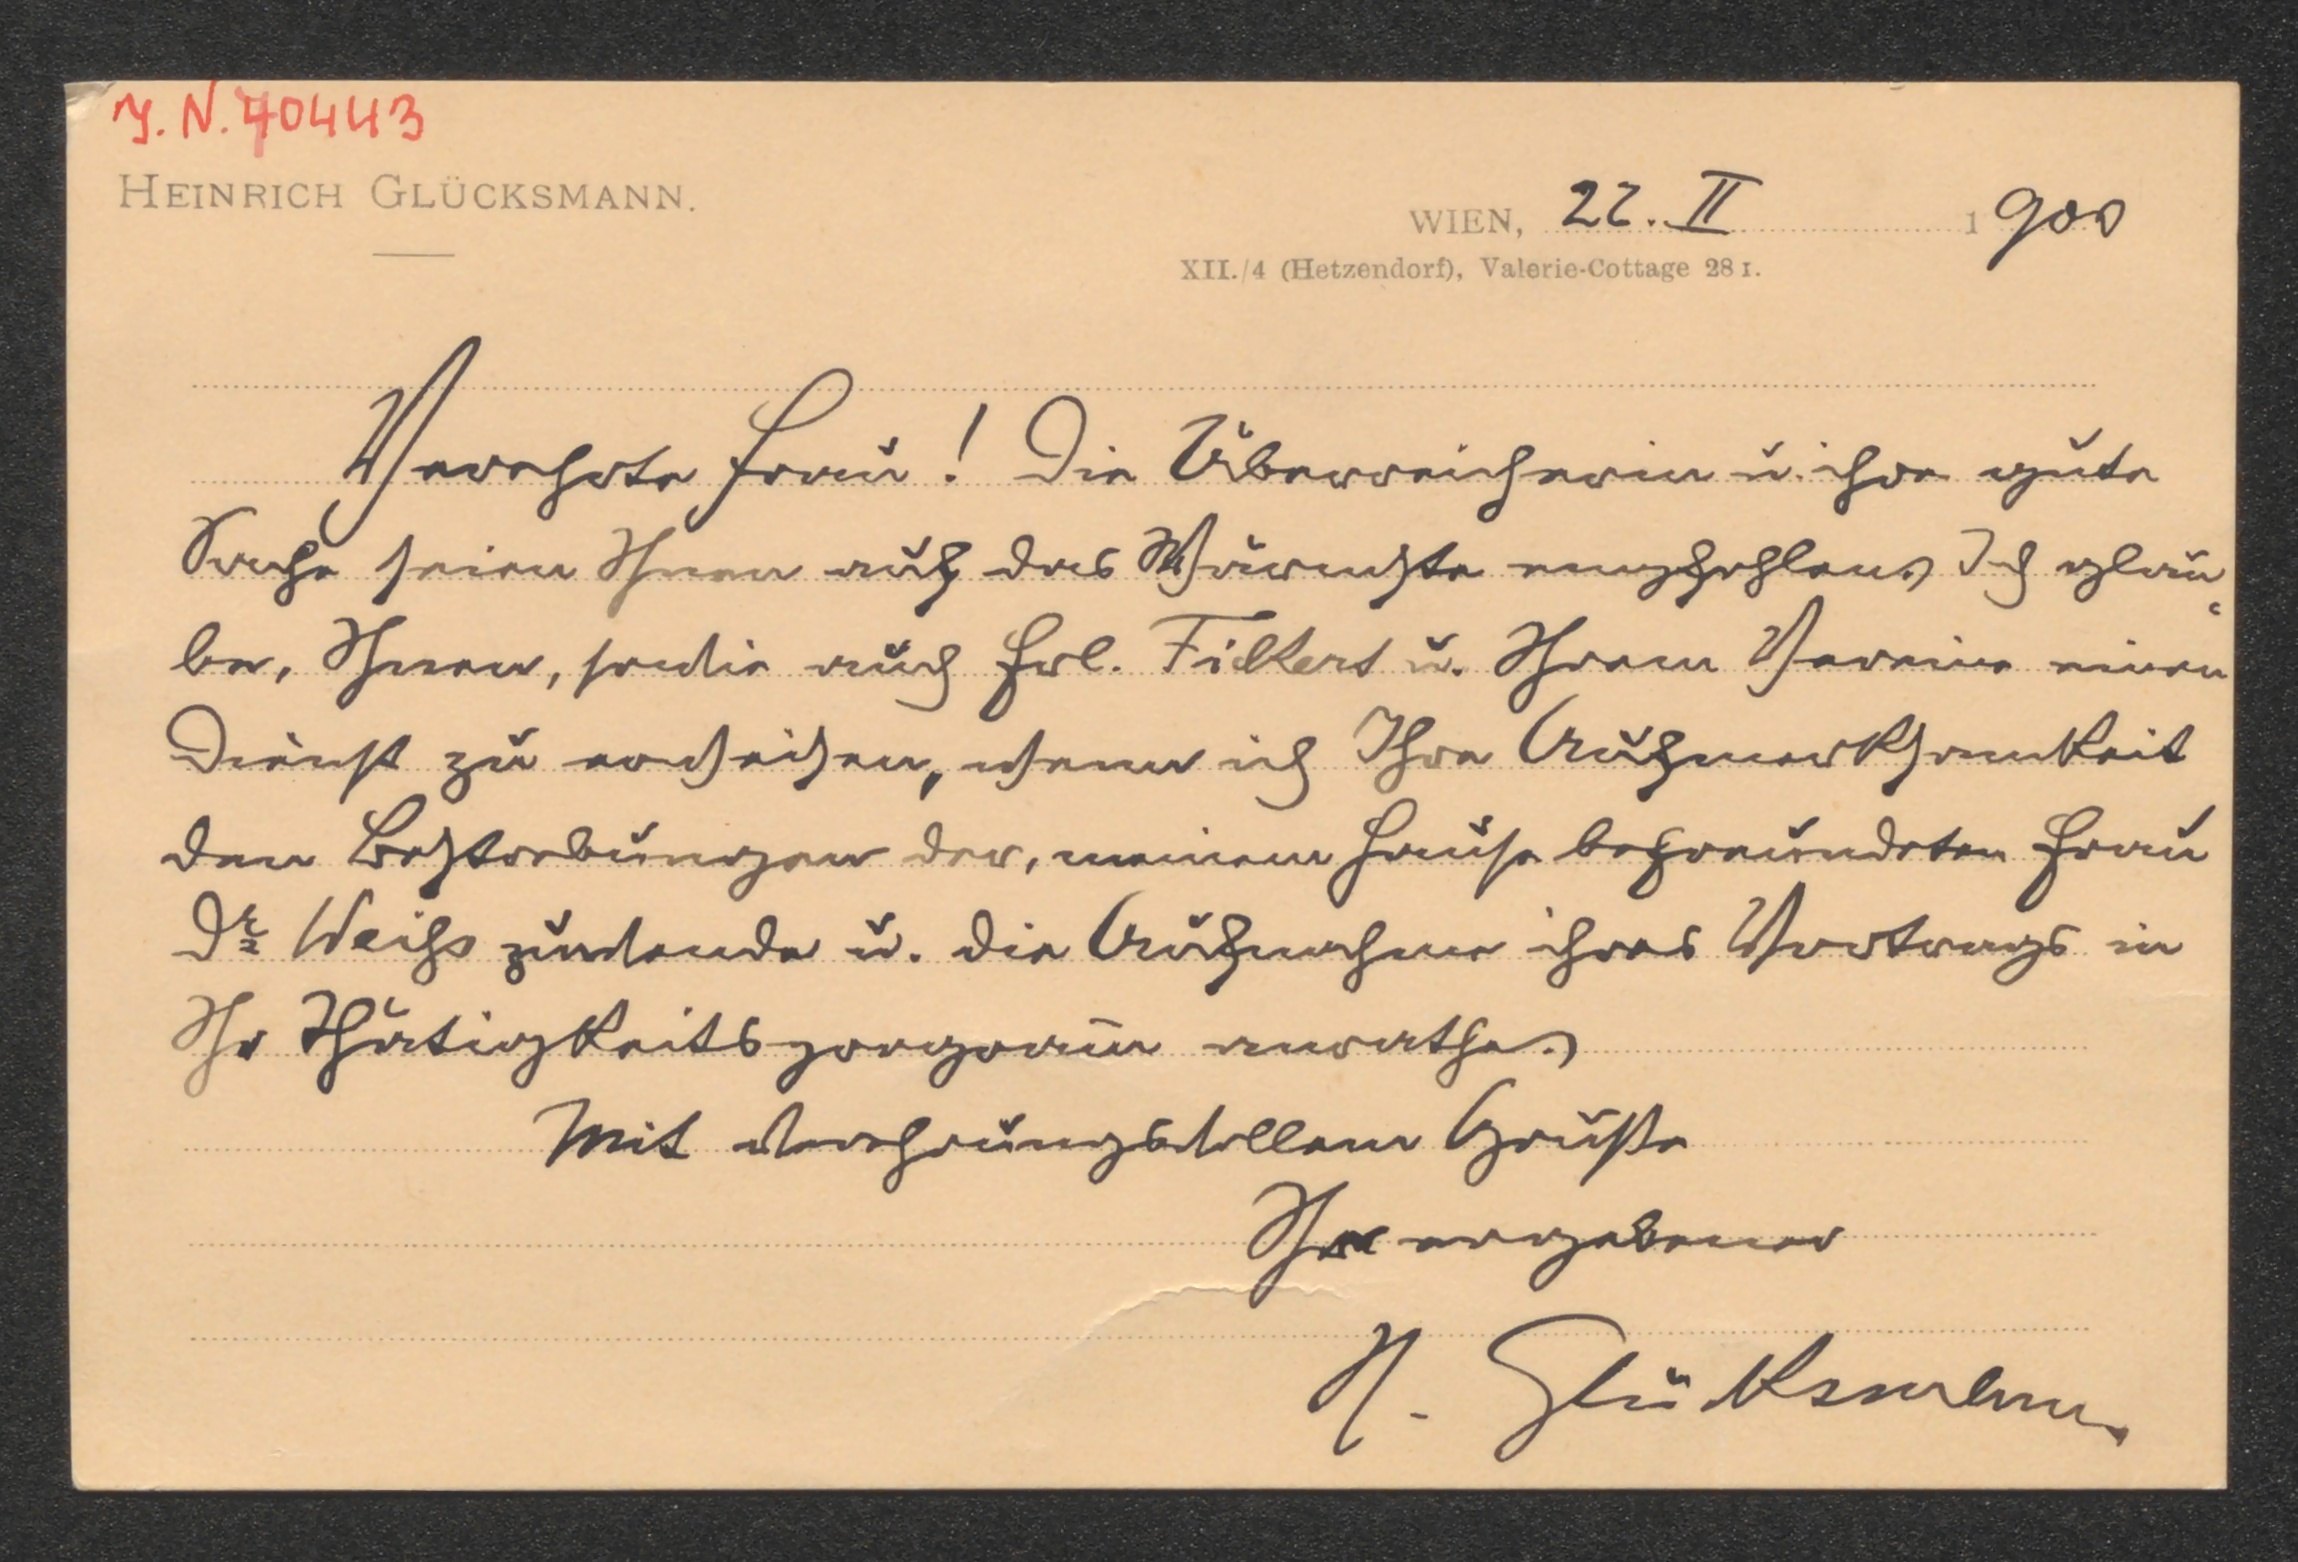 J. N. 70443
HEINRICH GLÜCKSMANN.
WIEN, 22. II 1900
XII./4 (Hetzendorf), Valerie-Cottage 28 I.
Verehrte Frau! Die Überreicherin u. ihre gute
Sache seien Ihnen auf das Wärmste empfohlen. Ich glau-
be, Ihnen, sowie auch Frl. Fickert u. Ihrem Vereine einen
Dienst zu erweisen, wenn ich Ihre Aufmerksamkeit
den Bestrebungen der, meinem Hause befreundeten Frau
Dr Weiss zuwende u. die Aufnahme ihres Vortrags in
Ihr Thätigkeitsprogram̅ anrathe.
Mit verehrungsvollem Gruße
Ihr ergebener
H. Glücksmann